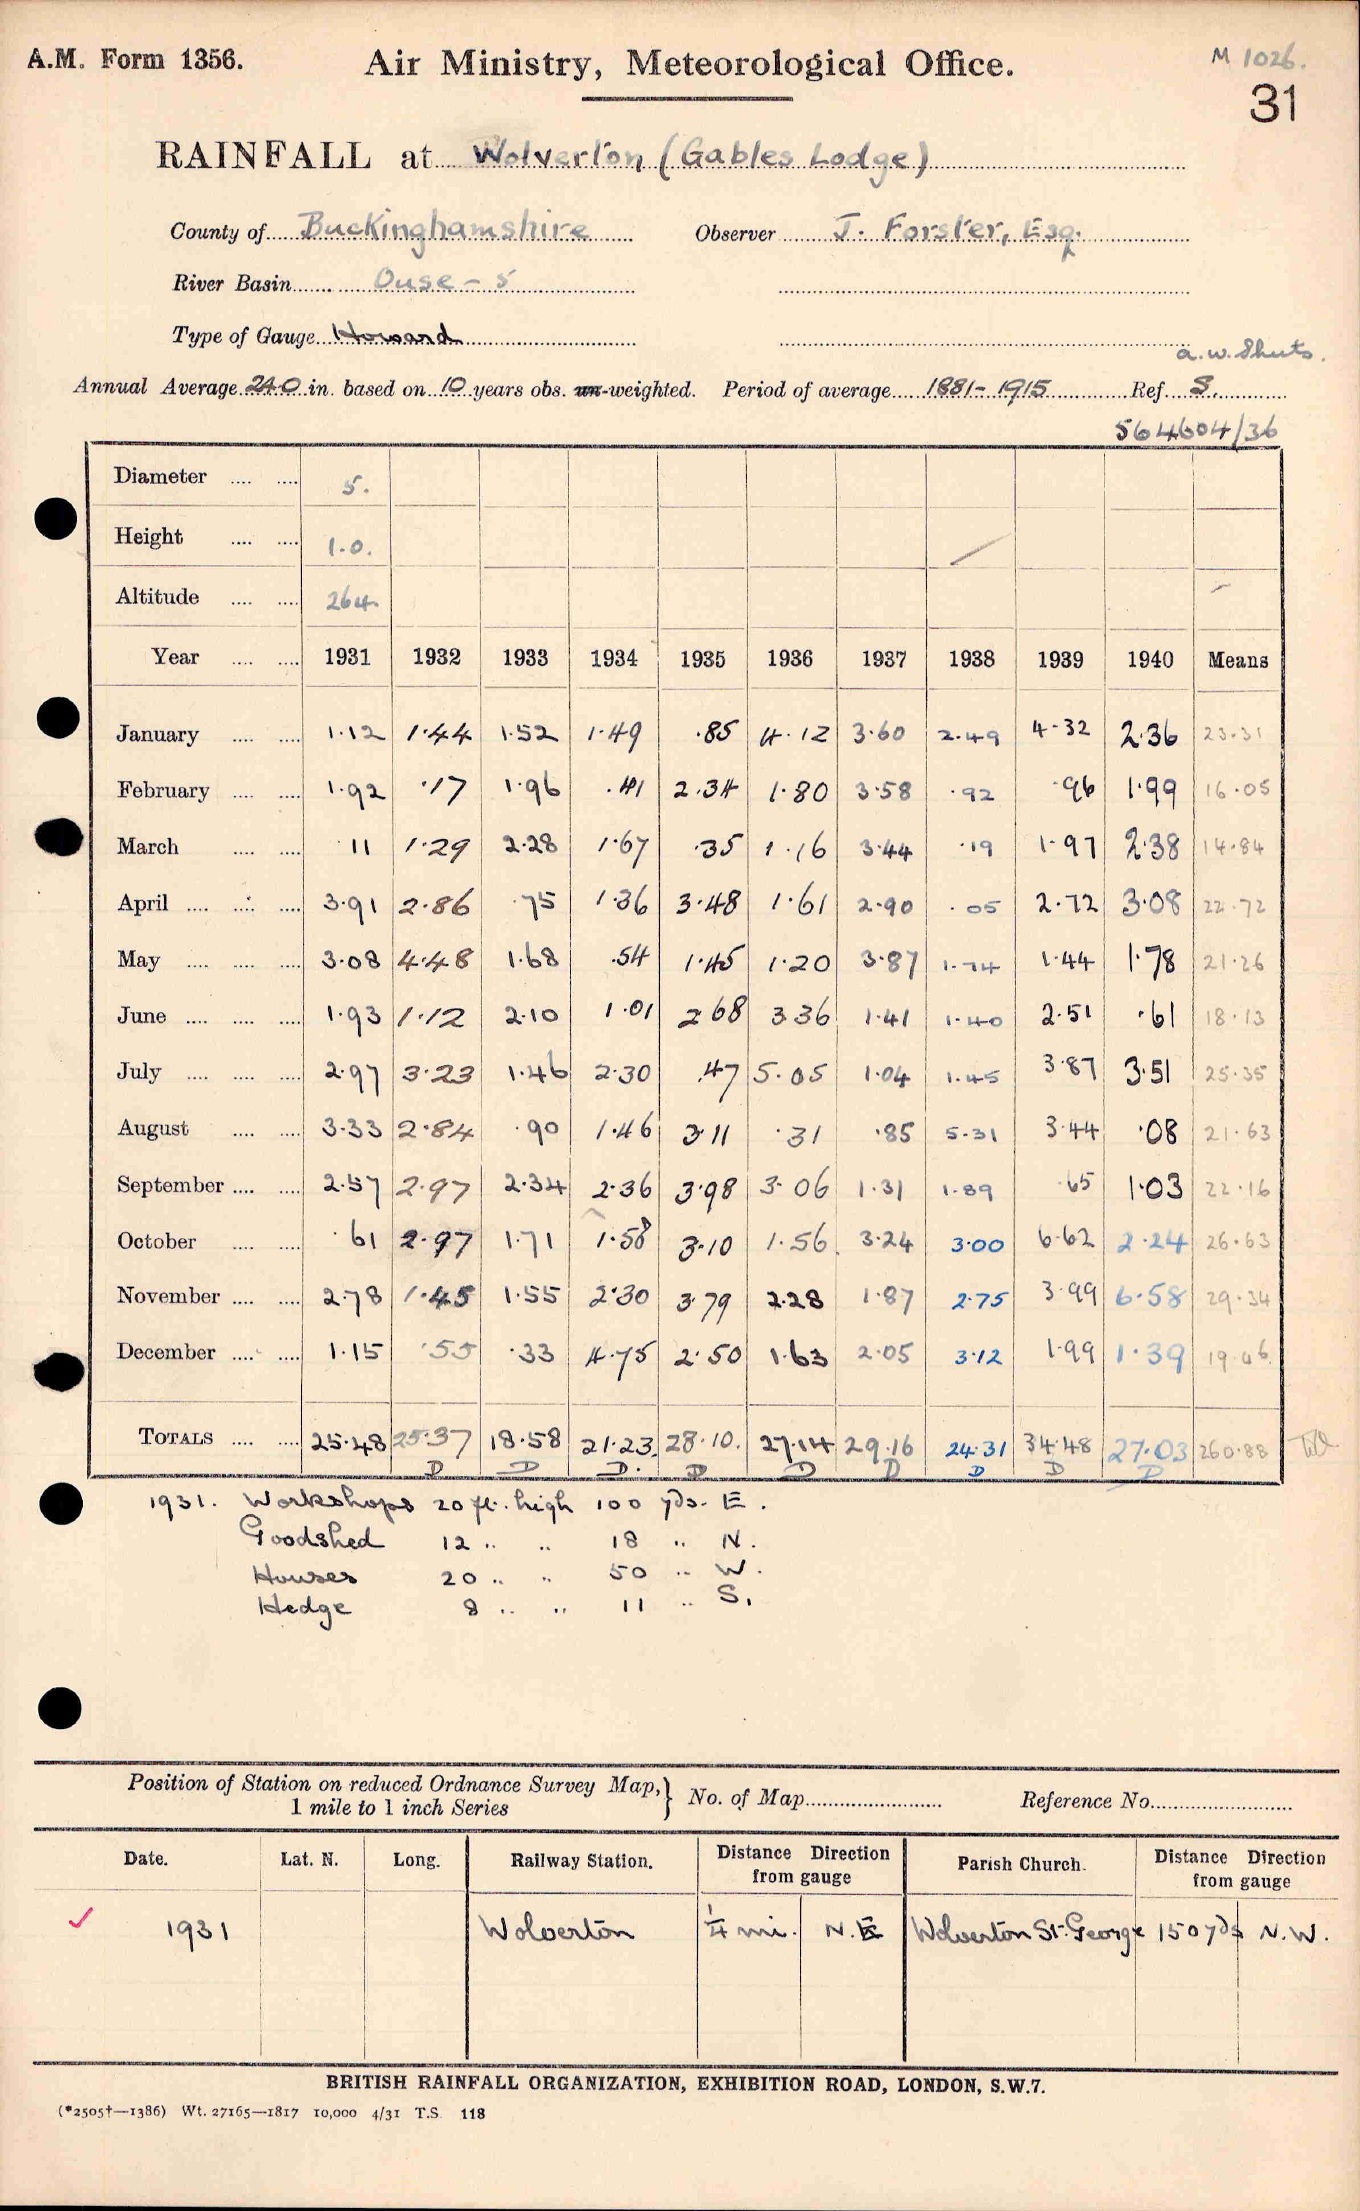 A.M. Form 1356.
Air Ministry, Meteorological Office.
M 1026.
31
RAINFALL at Wolverton (Gables Lodge)
County of Buckinghamshire Observer J. Forster, Esq.
River Basin Ouse - 5
Type of Gauge Howard
a.w. Shuts.
Annual Average 24.0 in. based on 10 years obs. un-weighted. Period of average 1881-1915 Ref. S.
564604/36
Diameter .... .... 5.
Height .... .... 1.0.
Altitude .... .... 264.
Year .... .... 1931 1932 1933 1934 1935 1936 1937 1938 1939 1940 Means
January .... .... 1.12 1.44 1.52 1.49 .85 4.12 3.60 2.49 4.32 2.36 23.31
February .... .... 1.92 .17 1.96 .41 2.34 1.80 3.58 .92 .96 1.99 16.05
March .... .... .11 1.29 2.28 1.67 .35 1.16 3.44 .19 1.97 2.38 14.84
April .... .... .... 3.91 2.86 .75 1.36 3.48 1.61 2.90 .05 2.72 3.08 22.72
May .... .... .... 3.08 4.48 1.68 .54 1.45 1.20 3.87 1.74 1.44 1.78 21.26
June .... .... .... 1.93 1.12 2.10 1.01 2.68 3.36 1.41 1.40 2.51 .61 18.13
July .... .... .... 2.97 3.23 1.46 2.30 .47 5.05 1.04 1.45 3.87 3.51 25.35
August .... .... 3.33 2.84 .90 1.46 3.11 .31 .85 5.31 3.44 .08 21.63
September .... .... 2.57 2.97 2.34 2.36 3.98 3.06 1.31 1.89 .65 1.03 22.16
October .... .... .61 2.97 1.71 1.58 3.10 1.56 3.24 3.00 6.62 2.24 26.63
November .... .... 2.78 1.45 1.55 2.30 3.79 2.28 1.87 2.75 3.99 6.58 29.34
December .... .... 1.15 .55 .33 4.75 2.50 1.63 2.05 3.12 1.99 1.39 19.46
TOTALS .... .... 25.48 25.37 18.58 21.23 28.10. 27.14 29.16 24.31 34.48 27.03 260.88
D D D. D D D D D D
1931. Workshops 20 ft. high 100 yds. E.
Goodshed 12 " " 18 " N.
Houses 20 " " 50 " W.
Hedge 8 " " 11 " S.
Position of Station on reduced Ordnance Survey Map, 1 mile to 1 inch Series } No. of Map Reference No.
Date. Lat. N. Long. Railway Station. Distance Direction from gauge Parish Church. Distance Direction from gauge
✓ 1931 Wolverton ¼ mi. N.E Wolverton St. George 150 yds N.W.
BRITISH RAINFALL ORGANIZATION, EXHIBITION ROAD, LONDON, S.W.7.
(*2505†—1386) Wt. 27165—1817 10,000 4/31 T.S. 118